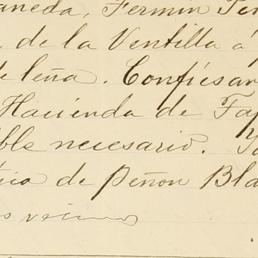 aneda, Fermin Ten
de la Ventilla á
leña. Confiésan
Hacienda de Ta
ble necesario.
ico de Peñon Bla
os vecinos